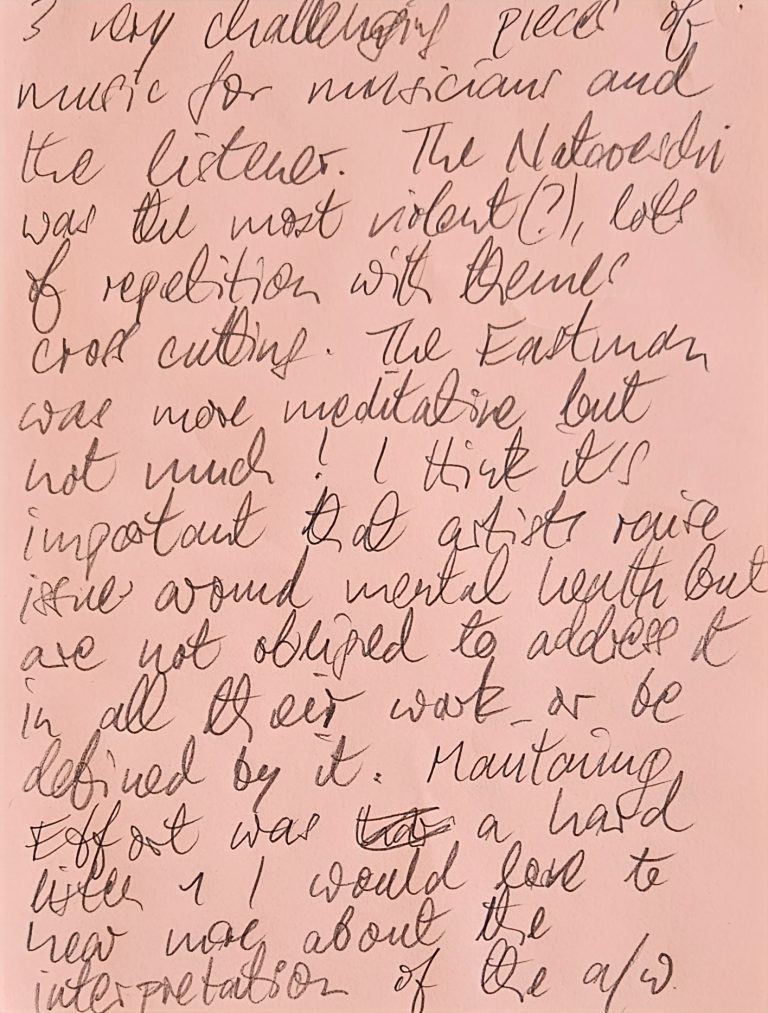 3 very challenging pieces of
music for musicians and
the listener. The
was the most violent(?), lots
of repetition with themes
cross cutting. The Eastman
was more meditative but
not much! I think it's
important that artists raise
issue around mental health but
are not obliged to address it
in all their work or be
defined by it. Mantaining
Effort was a hard
listen & I would love to
hear more about the
interpretation of the a/w.